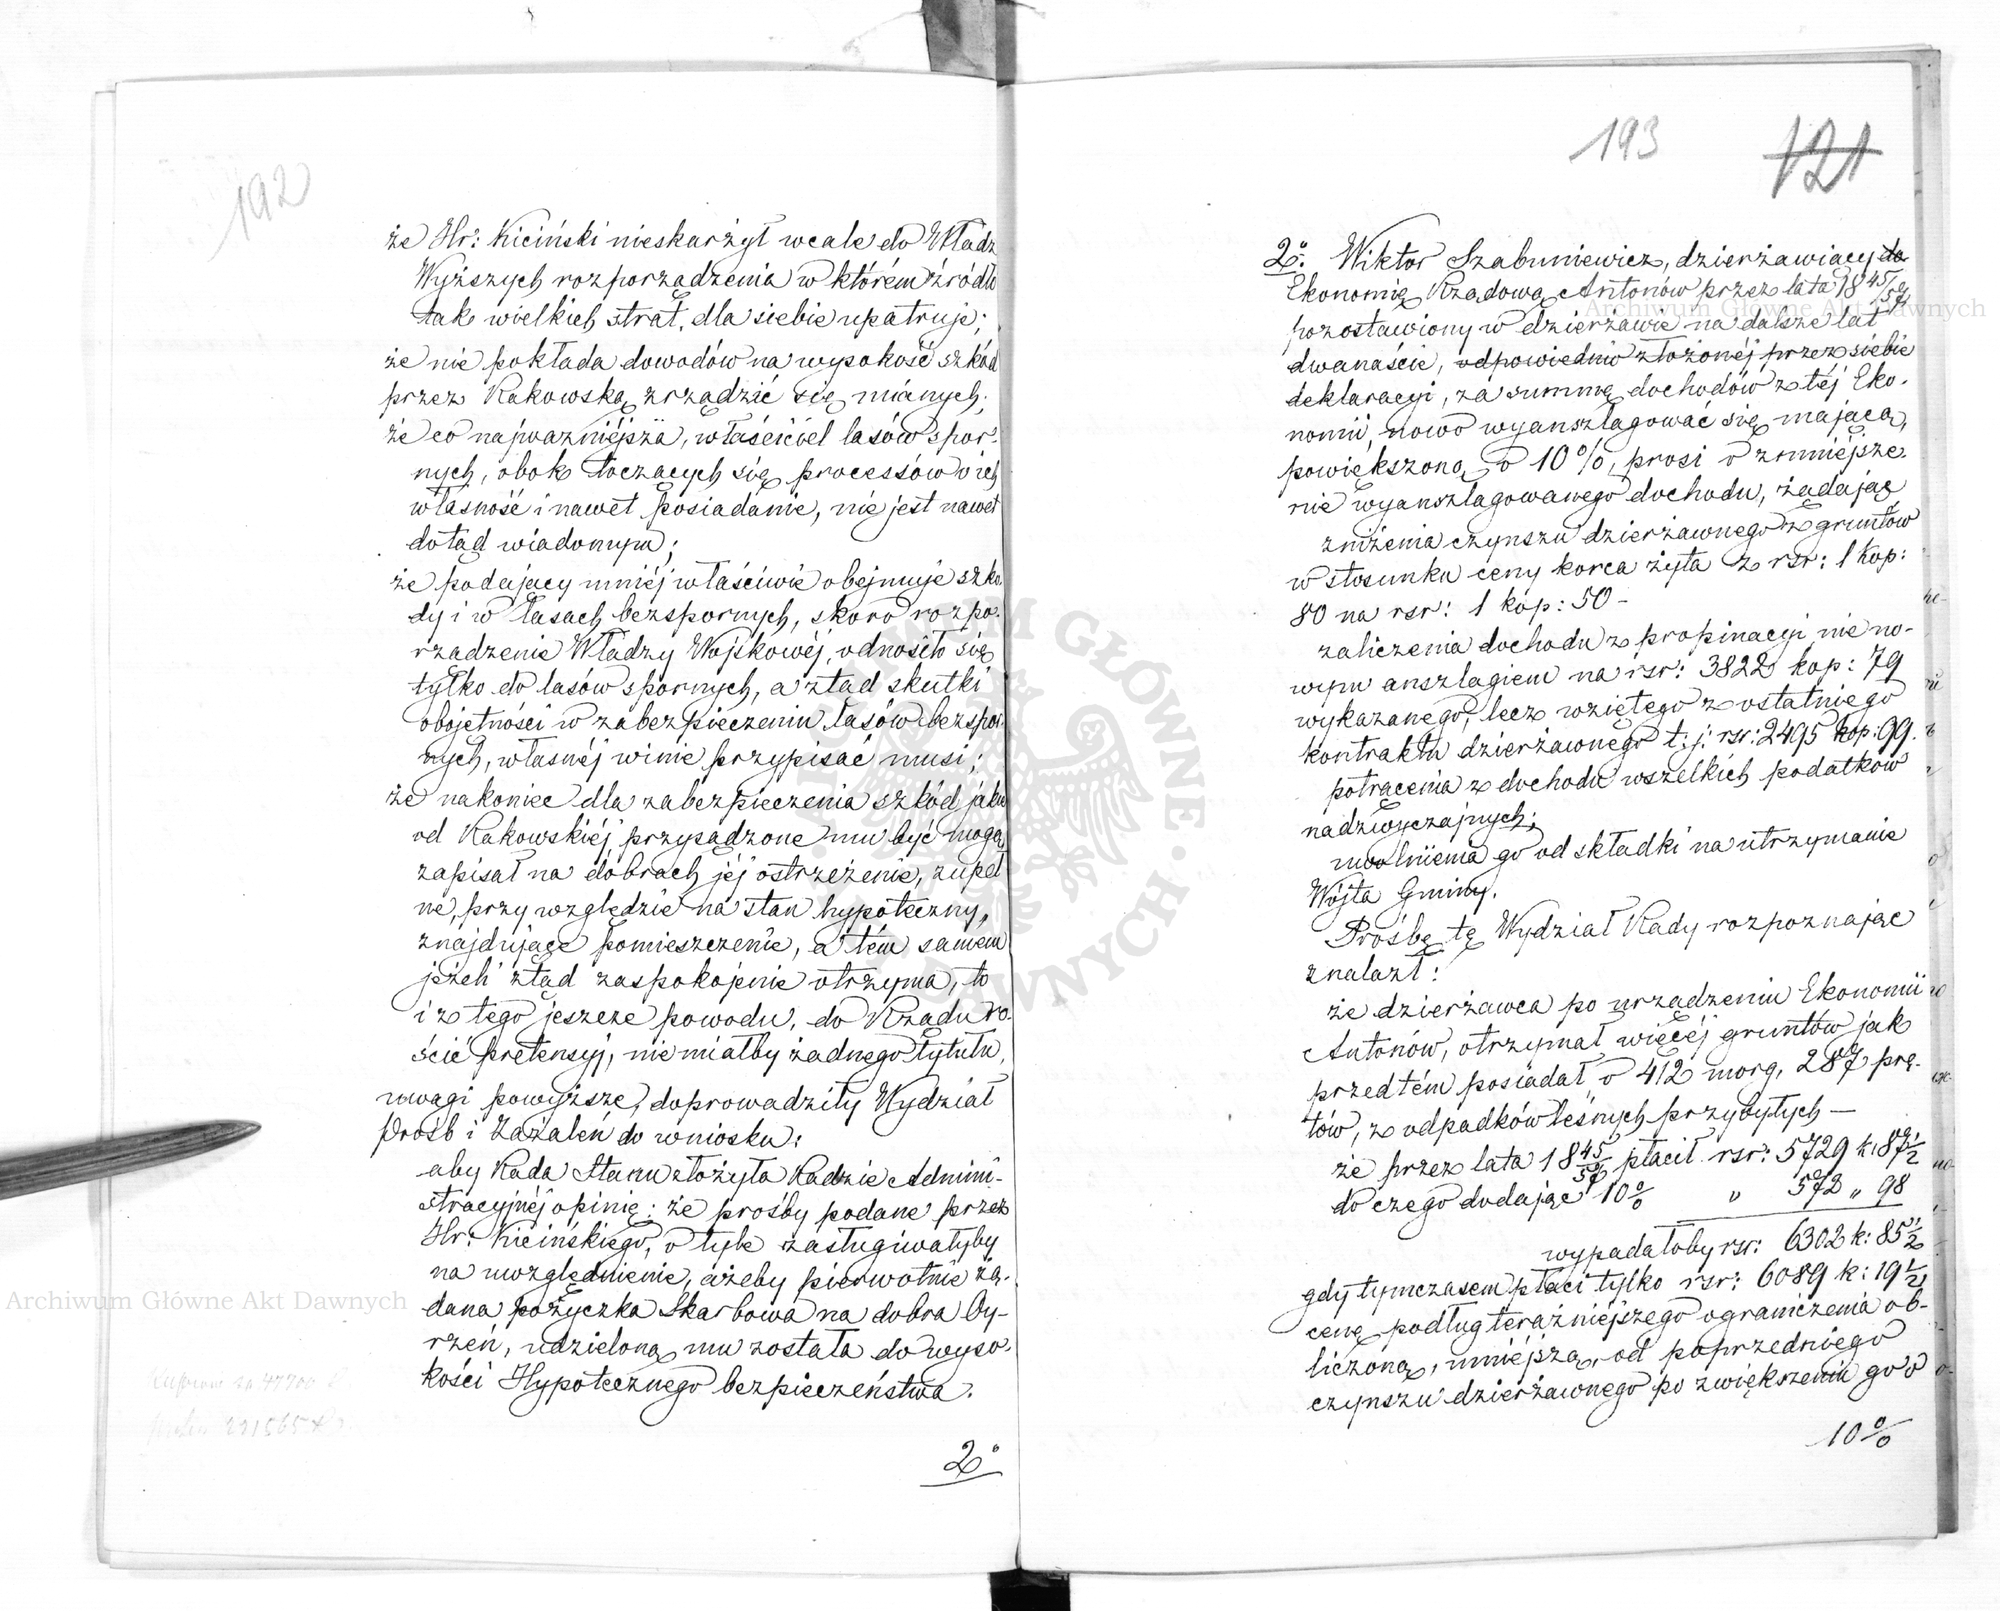 192
że Hr: Kiciński nieskarżył wcale do Władz
Wyższych rozporządzenia w którém źródło
tak wielkich strat, dla siebie upatruje;
że nie pokłada dowodów na wysokość szkód
przez Rakowską zrządzić się mianych;
że co najważniejsza, właściciel lasów spor-
nych, obok toczących się processów o ich
własność i nawet posiadanie, nie jest nawet
dotąd wiadomym;
że podający mniéj właściwie obejmuje szko-
dy i w lasach bezspornych, skoro rozpo-
rządzenie Władzy Wojskowéj, odnosiło się
tylko do lasów spornych, a ztąd skutki
obojętności w zabezpieczeniu lasów bezspor-
nych, własnéj winie przypisać musi;
że nakoniec dla zabezpieczenia szkód jakie
od Rakowskiéj przysądzone mu być mogą
zapisał na dobrach jéj ostrzeżenie, zupeł
ne, przy względzie na stan hypoteczny,
znajdujące pomieszczenie, a tém samem
jeżeli ztąd zaspokojenie otrzyma, to
i z tego jeszcze powodu, do Rządu ro-
ścić pretensyj, nie miałby żadnego tytułu,
uwagi powyższe, doprowadziły Wydział
Prośb i Zażaleń do wniosku:
aby Rada Stanu złożyła Radzie Admini-
stracyjnéj opinię: że prośby podane przez
Hr: Kicińskiego, o tyle zasługiwałyby
na uwzględnienie, ażeby pierwotnie żą-
dana pożyczka Skarbowa na dobra Oy-
rzeń, udzieloną mu została do wyso-
kości Hypotecznego bezpieczeństwa.
2°
193
121
2° Wiktor Szabuniewicz, dzierżawiący do
Ekonomię Rządową Antonów przez lata 1845/57
pozostawiony w dzierżawie na dalsze lat
dwanaście, odpowiednio złożonéj przez siebie
deklaracyi, za summę dochodów z téj Eko-
nomii, nowo wyanszlagować się mającą,
powiększoną o 10%, prosi o zmniejsze-
nie wyanszlagowanego dochodu, żądając
zniżenia czynszu dzierżawnego z gruntów
w stosunku ceny korca żyta z rsr: 1 kop:
80 na rsr: 1 kop: 50 -
zaliczenia dochodu z propinacyi nie no-
wym anszlagiem na rsr: 3822 kop: 79
wykazanego, lecz wziętego z ostatniego
kontraktu dzierżawnego t: j: rsr: 2495 kop: 99.
potrącenia z dochodu wszelkich podatków
nadzwyczajnych;
uwolnienia go od składki na utrzymanie
Wójta Gminy.
Prośbę tę Wydział Rady rozpoznając
znalazł:
że dzierżawca po urządzeniu Ekonomii
Antonów, otrzymał więcéj gruntów jak
przedtém posiadał o 412 morg, 287 prę-
tów, z odpadków leśnych przybyłych —
że przez lata 1845/57 płacił rsr: 5729 k: 87½
do czego dodając 10% " 572 " 98
wypadałoby rsr: 6302 k: 85½
gdy tymczasem płaci tylko rsr: 6089 k: 19½
cenę podług teraźniejszego ograniczenia ob-
liczoną, mniejszą, od poprzedniego
czynszu dzierżawnego po zwiększeniu go o
10%
Archiwum Główne Akt Dawnych
Archiwum Główne Akt Dawnych